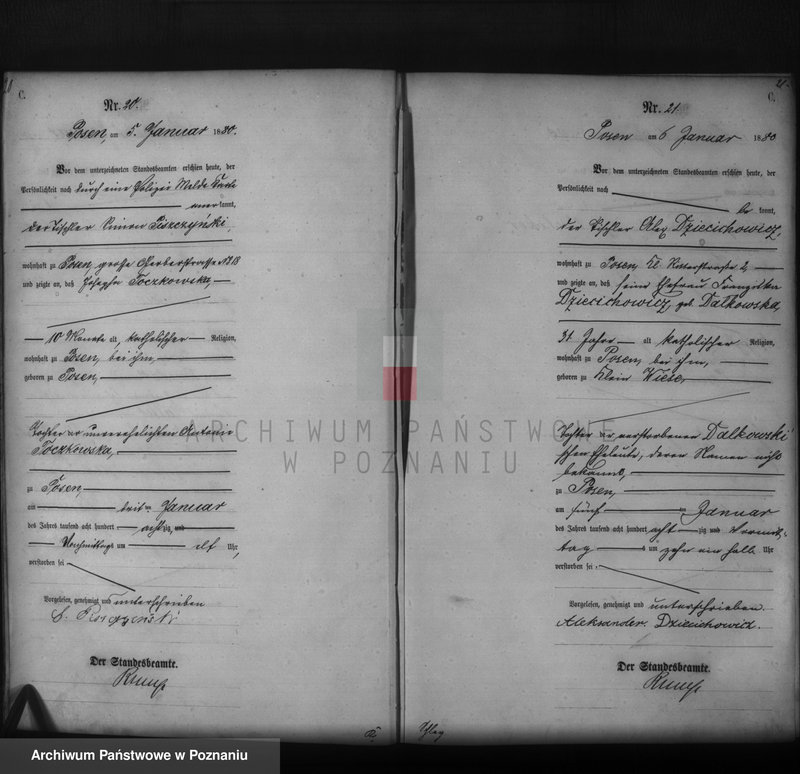 C.
Nr. 20.
Posen, am 5. Januar 1880.
Vor dem unterzeichneten Standesbeamten erschien heute, der
Persönlichkeit nach durch eine Polizei Melde Karte
anerkannt,
der Tischler
wohnhaft zu Posen, grosse Gerberstrasse № 18
und zeigte an, daß Josepha Toczkowska,
10 Monate alt, katholischer Religion,
wohnhaft zu Posen, bei ihm,
geboren zu Posen,
Tochter der unverehelichten Antonie
Toczkowska,
zu Posen,
am drit ten Januar
des Jahres tausend acht hundert acht zig und
Vormittags um elf Uhr,
verstorben sei
Vorgelesen, genehmigt und unterschrieben
Der Standesbeamte.
21.
C.
Nr. 21
Posen am 6 Januar 1880
Vor dem unterzeichneten Standesbeamten erschien heute, der
Persönlichkeit nach
be kannt,
der Tischler Alex Dziecichowicz
wohnhaft zu Posen, Kl. Ritterstrasse 2,
und zeigte an, daß seine Ehefrau Franziska
Dziecichowicz, geb. Dalkowska,
31 Jahre alt katholischer Religion,
wohnhaft zu Posen, bei ihm,
geboren zu Klein Wiese,
Tochter der verstorbenen Dalkowski
schen Eheleute, deren Namen nicht
bekannt,
zu Posen,
am fünf ten Januar
des Jahres tausend acht hundert acht zig und Vormit-
tag um zehn ein halb Uhr
verstorben sei
Vorgelesen, genehmigt und unterschrieben.
Aleksander Dziecichowicz.
Der Standesbeamte.
ARCHIWUM PAŃSTWOWE
W POZNANIU
Archiwum Państwowe w Poznaniu